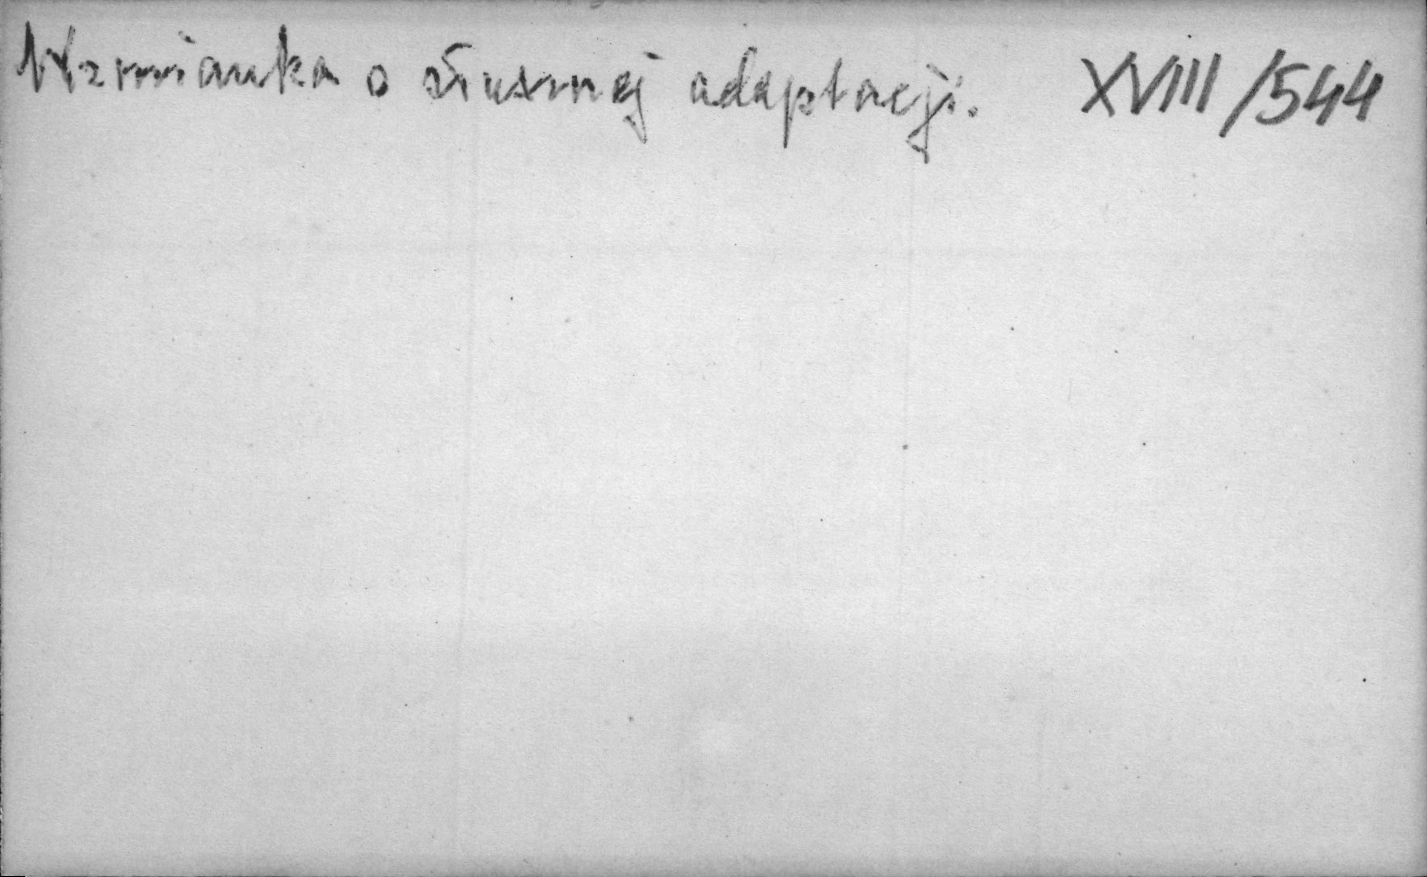 Wzmianka o słusznej adaptacji. XVIII/544